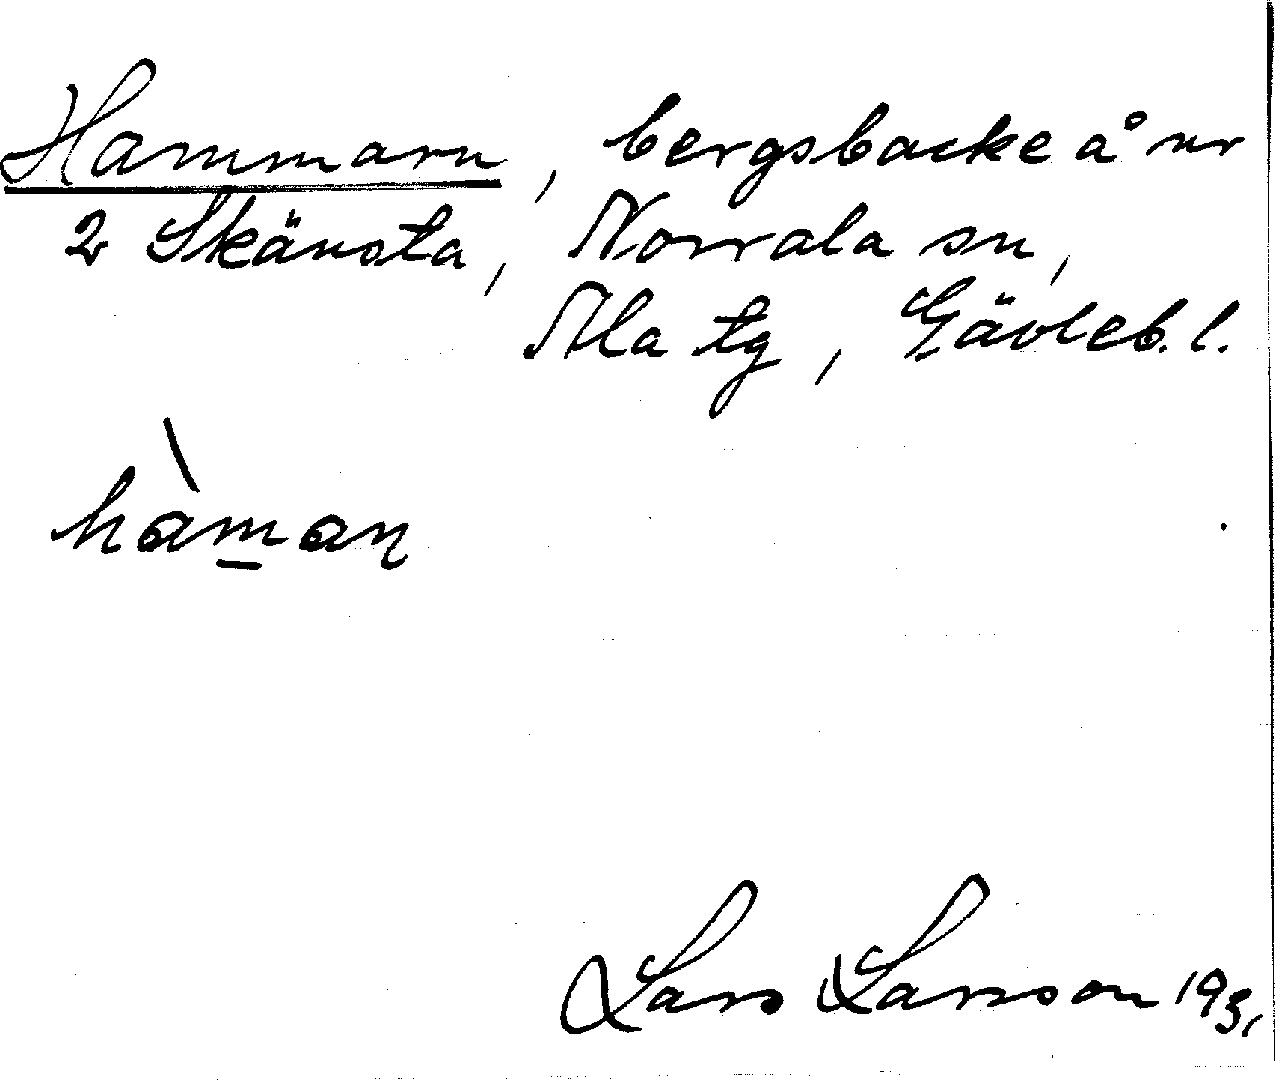 Hammarn, bergsbacke å nr
2 Skänsta, Norrala sn,
Ala tg, Gävleb. l.
hàmaṇ
Lars Larsson 1931